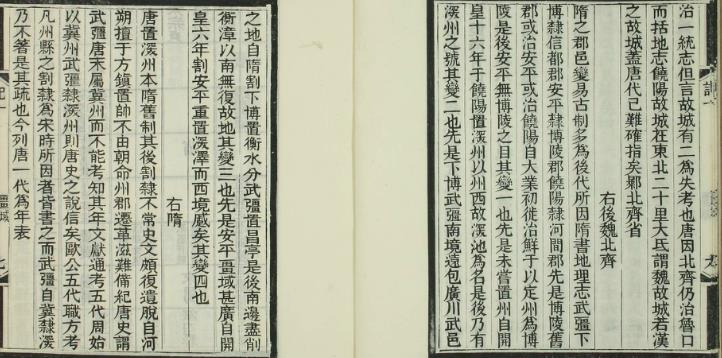 治一統志但言故城有二為失考也唐因北齊仍治魯口
而括地志饒陽故城在東北二十里大氐謂魏故城若漢
之故城蓋唐代已難確指矣鄡北齊省
右後魏北齊
隋之郡邑變易古制多為後代所因隋書地理志武彊下
博隸信都郡安平隸博陵郡饒陽隸河間郡先是博陵舊
郡或治安平或治饒陽自大業初徙治鮮于以定州為博
陵是後安平無博陵之目其變一也先是未嘗置州自開
皇十六年于饒陽置深州以州西故深池為名是後乃有
深州之號其變二也先是下博武彊南境遠包廣川武邑
之地自隋割下博置衡水分武彊置昌亭是後南邊盡削
衡漳以南無復故地其變三也先是安平畺域甚廣自開
皇六年割安平重置深澤而西境蹙矣其變四也
右隋
唐置深州本隋舊制其後割隸不常史文頗復遺脫自河
朔擅于方鎮置帥不由朝命州郡遷革滋難備紀唐史謂
武彊唐末屬冀州而不能考知其年文獻通考五代周始
以冀州武彊隸深州則唐史之說信矣歐公五代職方考
凡州縣之割隸為宋時所因者皆書之而武彊自冀隸深
乃不著是其疏也今列唐一代為年表
畺域